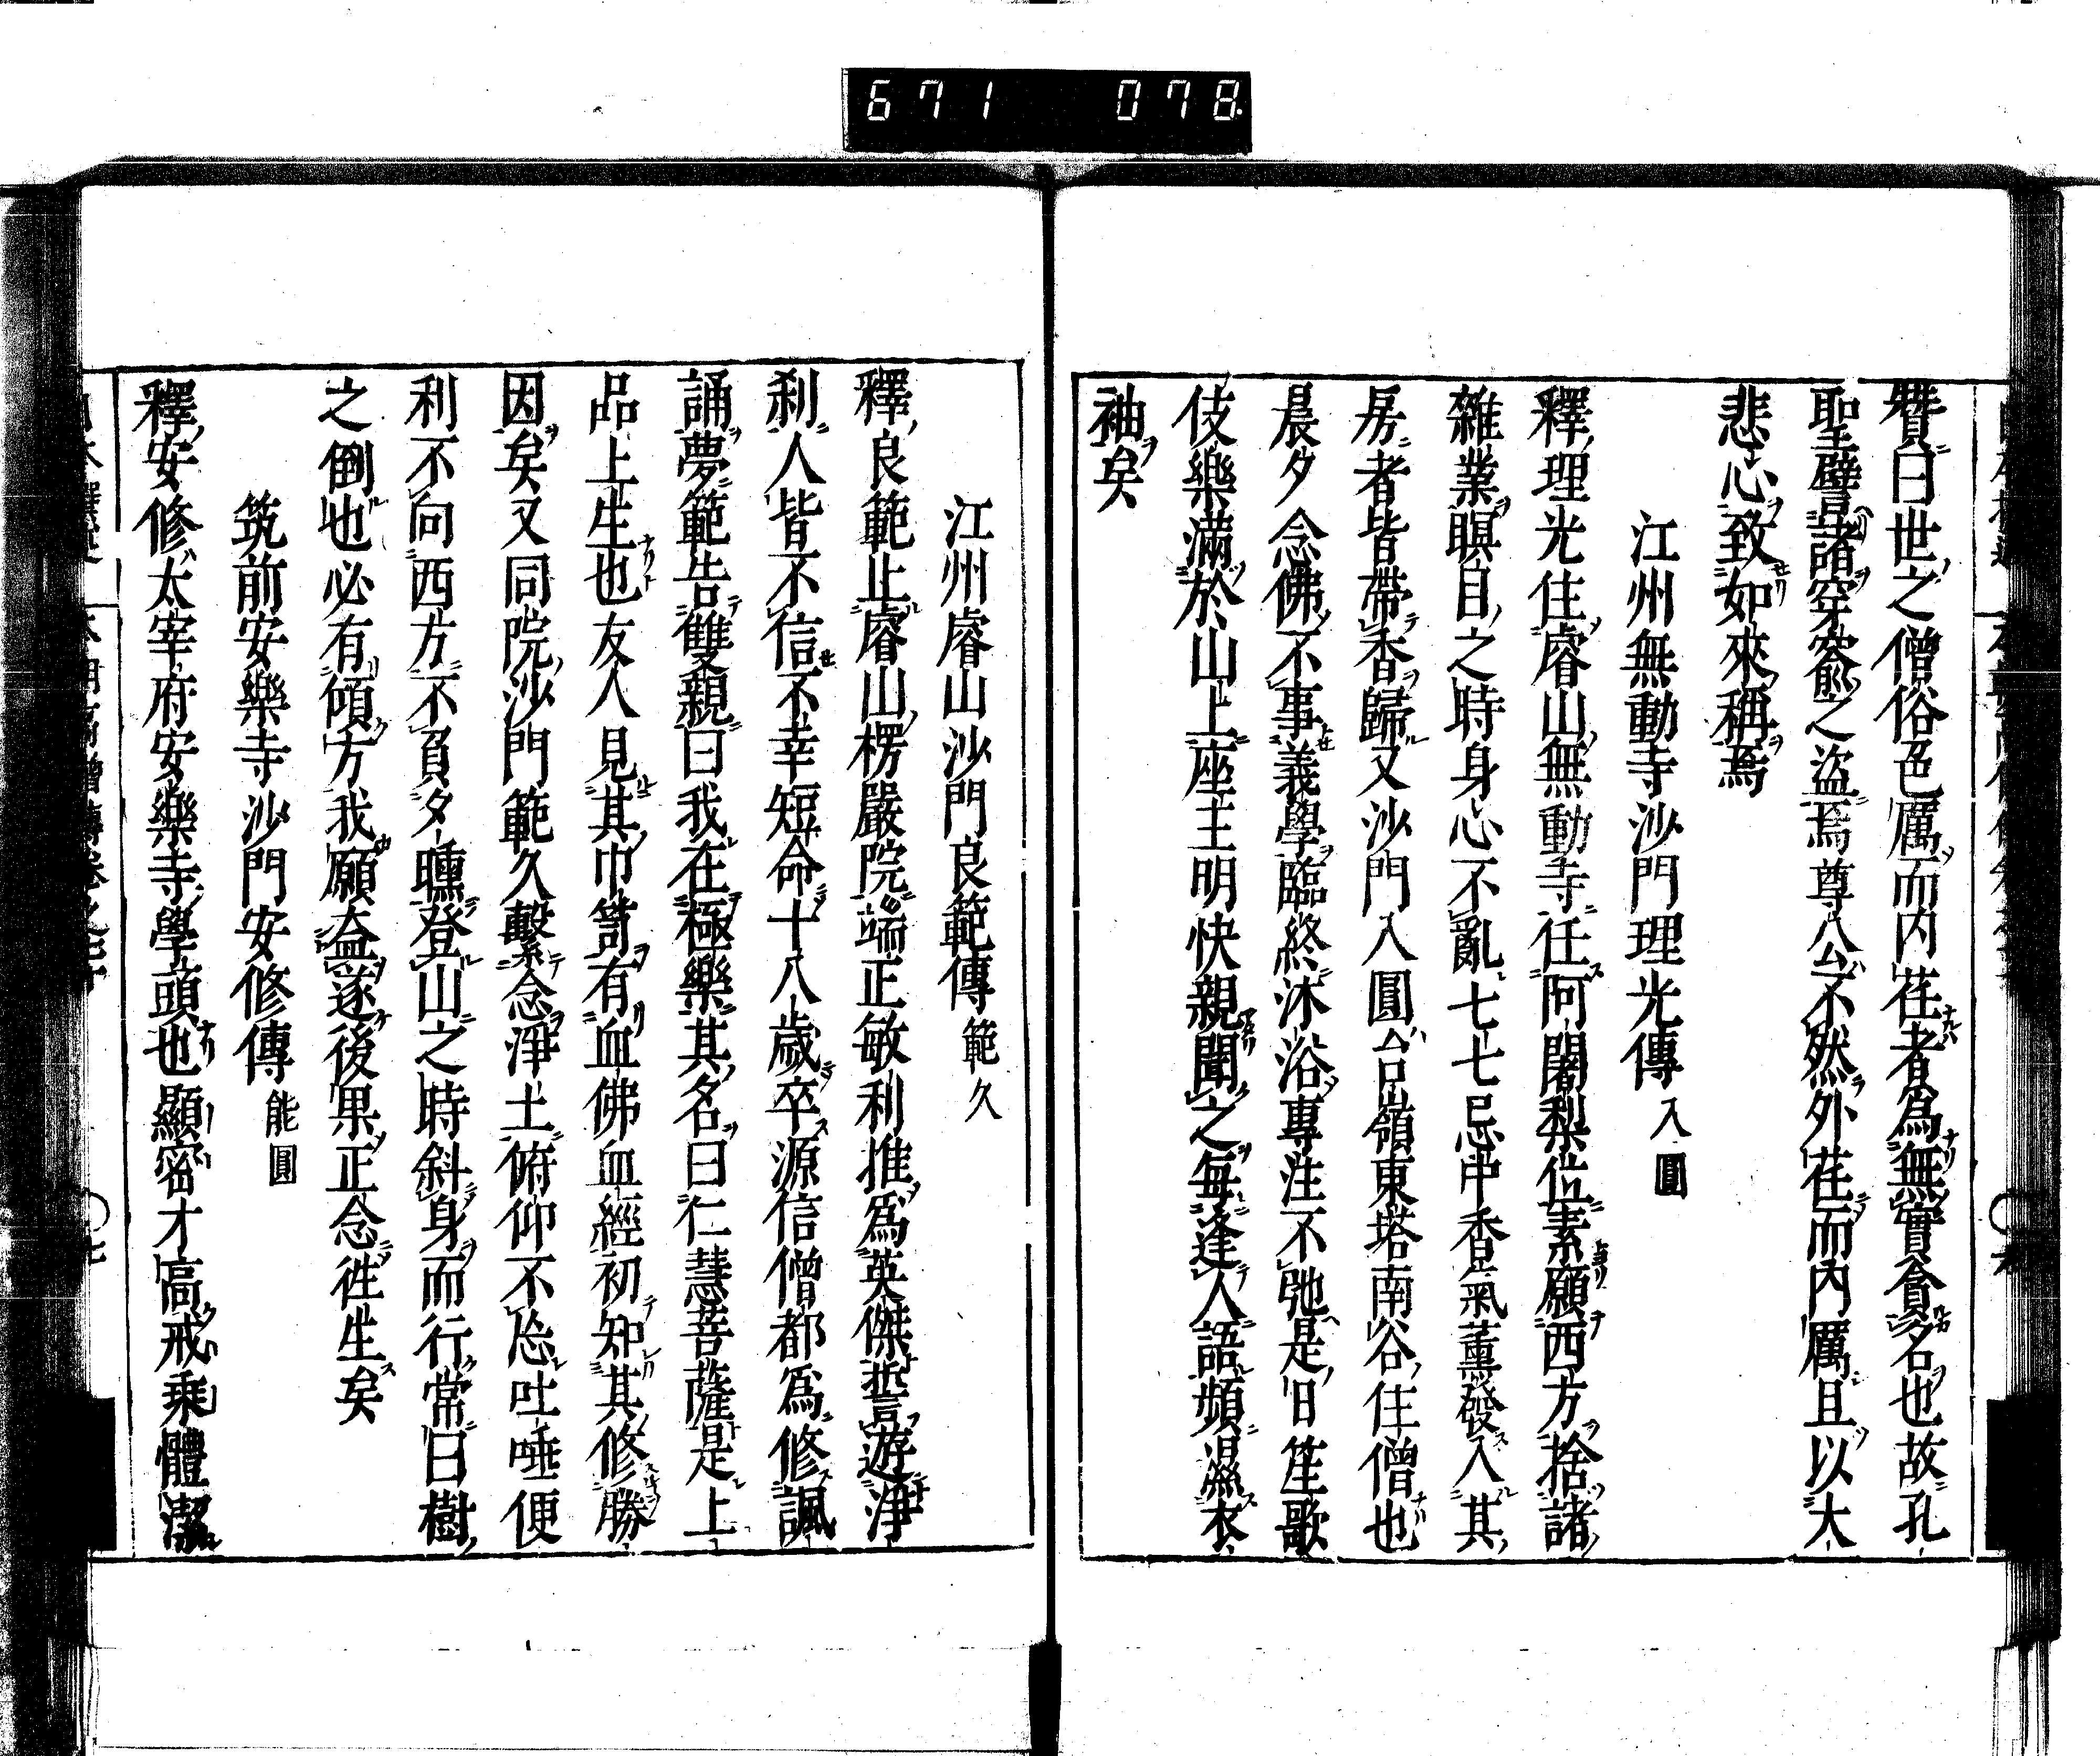 671 078
賛曰世之僧俗色厲而内荏者為無實貪名也故孔
聖譬諸穿窬之盜焉尊公不然外荏而内厲且以大
悲心致如來稱焉
江州無動寺沙門理光傳 入圓
釋理光住睿山無動寺任阿闍梨位素願西方捨諸
雜業瞑目之時身心不亂七七忌中香氣薫發入其
房者皆帶香歸又沙門入圓台嶺東塔南谷住僧也
晨夕念佛不事義學臨終沐浴專注不弛是日笙歌
伎樂滿於山上座主明快親聞之毎逢人語頻濕衣
袖矣
江州睿山沙門良範傳 範久
釋良範止睿山楞嚴院端正敏利推為英傑誓遊淨
刹人皆不信不幸短命十八歳卒源信僧都為修諷
誦夢範告雙親曰我在極樂其名曰仁慧菩薩是上
品上生也友人見其巾笥有血佛血經初知其修勝
因矣又同院沙門範久繫念淨土俯仰不忘吐唾便
利不向西方不負夕曛登山之時斜身而行常曰樹
之倒也必有傾方我願益遂後果正念徃生矣
筑前安樂寺沙門安修傳 能圓
釋安修太宰府安樂寺學頭也顯密才高戒乘體潔